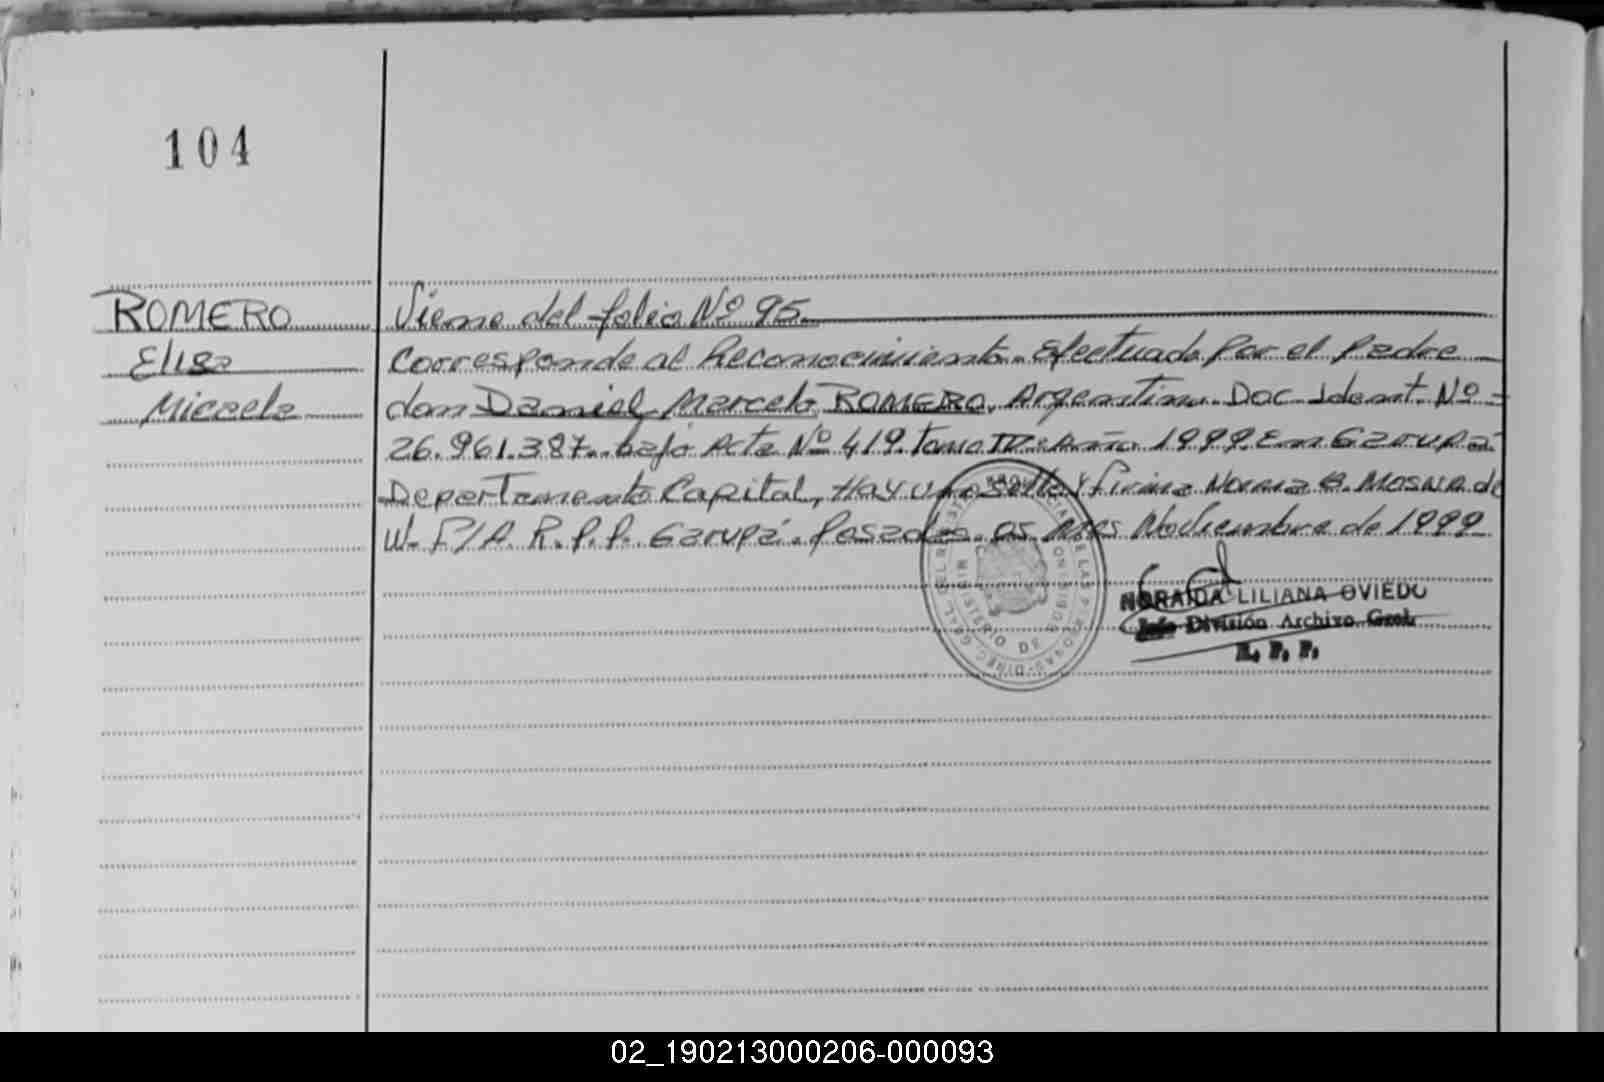 104
ROMERO
Elisa
Micaela
Viene del folio Nº 95.
Corresponde al Reconocimiento efectuado por el padre
don Daniel Marcelo ROMERO, Argentino. Doc. Ident. Nº
26.961.387. bajo Acta Nº 419. Tomo IV. Año 1999. En Garupá
Departamento Capital, Hay un sello y firma Norma B. de
W. F/A. R.P.P. Garupá. Posadas. 05 Mes Noviembre de 1999
NORAIDA LILIANA OVIEDO
Jefe División Archivo Gral.
R. P. P.
MINISTERIO DE GOBIERNO
02_190213000206-000093